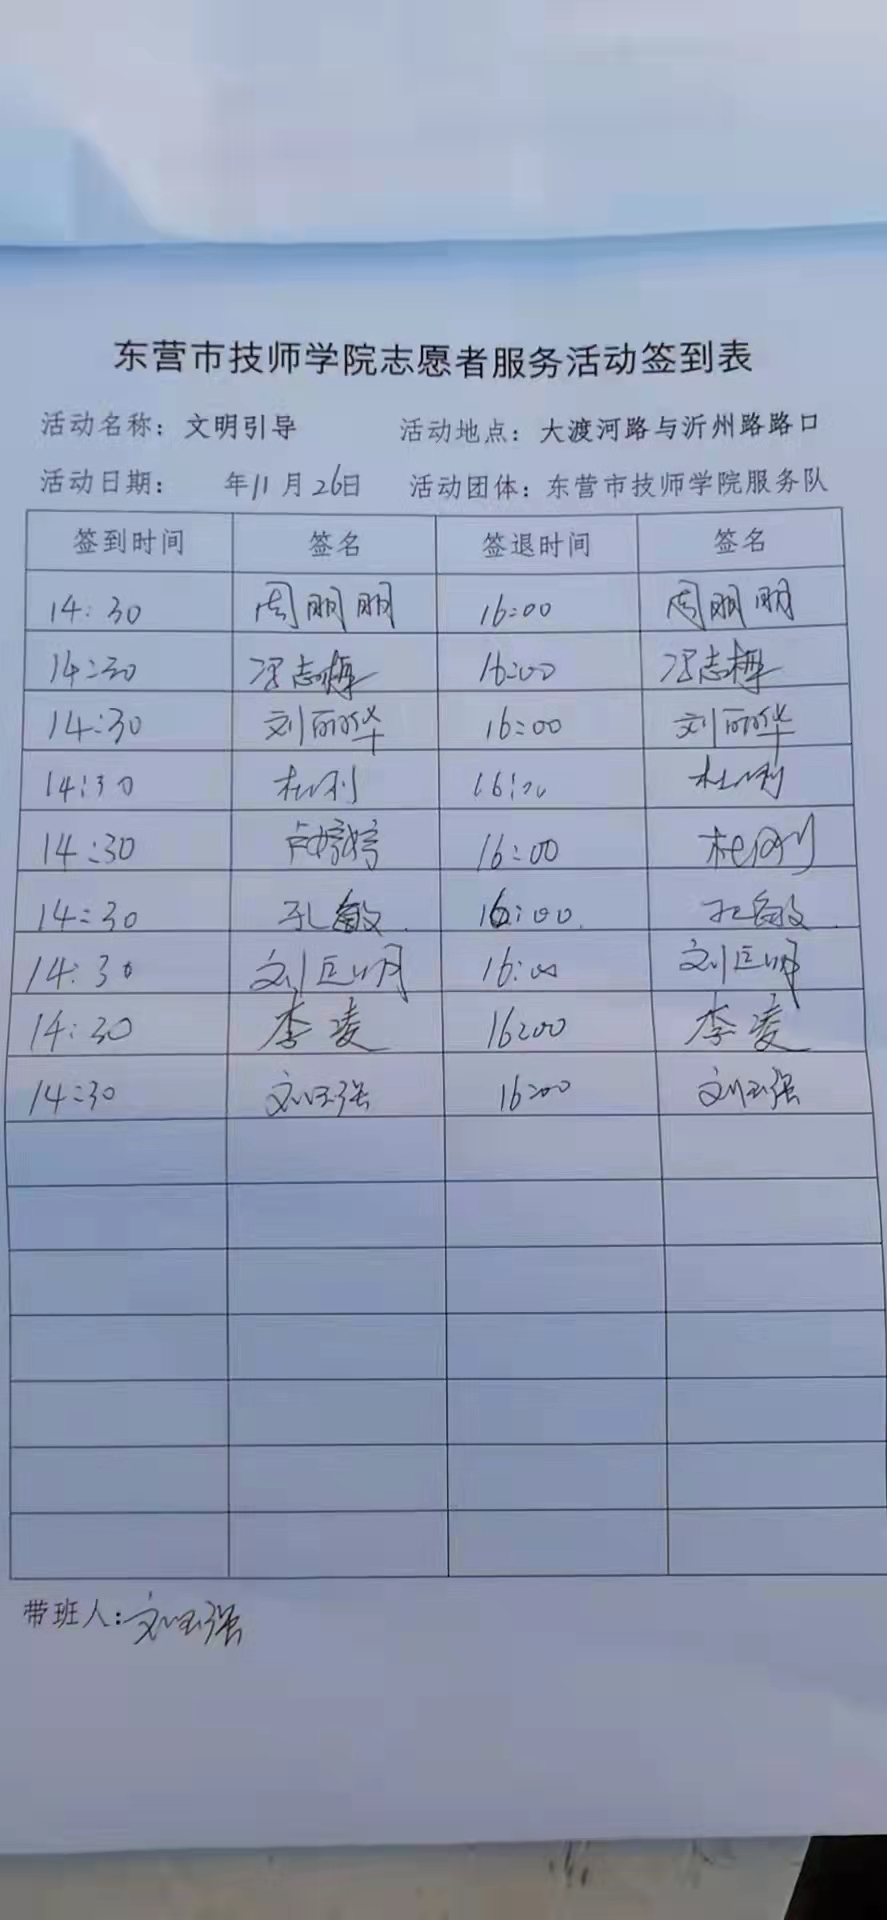 东营市技师学院志愿者服务活动签到表
活动名称：文明引导 活动地点：大渡河路与沂州路路口
活动日期： 年11月26日 活动团体：东营市技师学院服务队
签到时间 签名 签退时间 签名
14:30 周明明 16:00 周明明
14:30 志梅 16:00 志梅
14:30 刘丽华 16:00 刘丽华
14:30 16:
14:30 卢婷婷 16:00
14:30 孔敏 16:00 孔敏
14:30 刘巨明 16:00 刘巨明
14:30 李凌 16:00 李凌
14:30 刘玉强 16:00 刘玉强
带班人：刘玉强